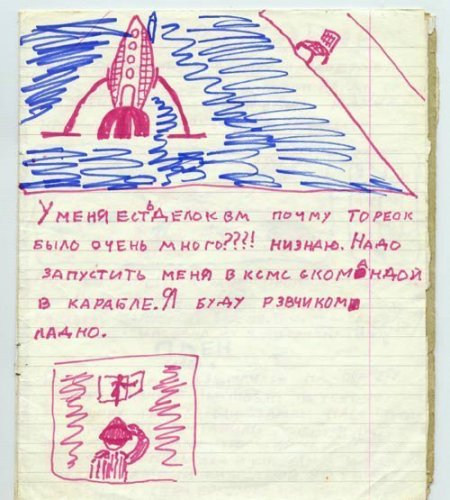 У МЕНЯ ЕСТЬ ДЕЛОК ВМ ПОЧМУ ТОРЕОК
БЫЛО ОЧЕНЬ МНОГО???! НИЗНАЮ. НАДО
ЗАПУСТИТЬ МЕНЯ В КСМС СКОМАНДОЙ
В КАРАБЛЕ. Я БУДУ РЭВЧИКОМ
ЛАДНО.